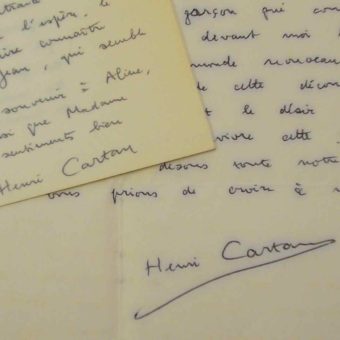 l'espère, le
connaître
Jean, qui semble
souvenir à Aline,
que Madame
sentiments bien
Henri Cartan
garçon qui
devant moi
monde nouveau
de cette
et le désir
vivre cette
toute notre
vous prions de croire à
Henri Cartan